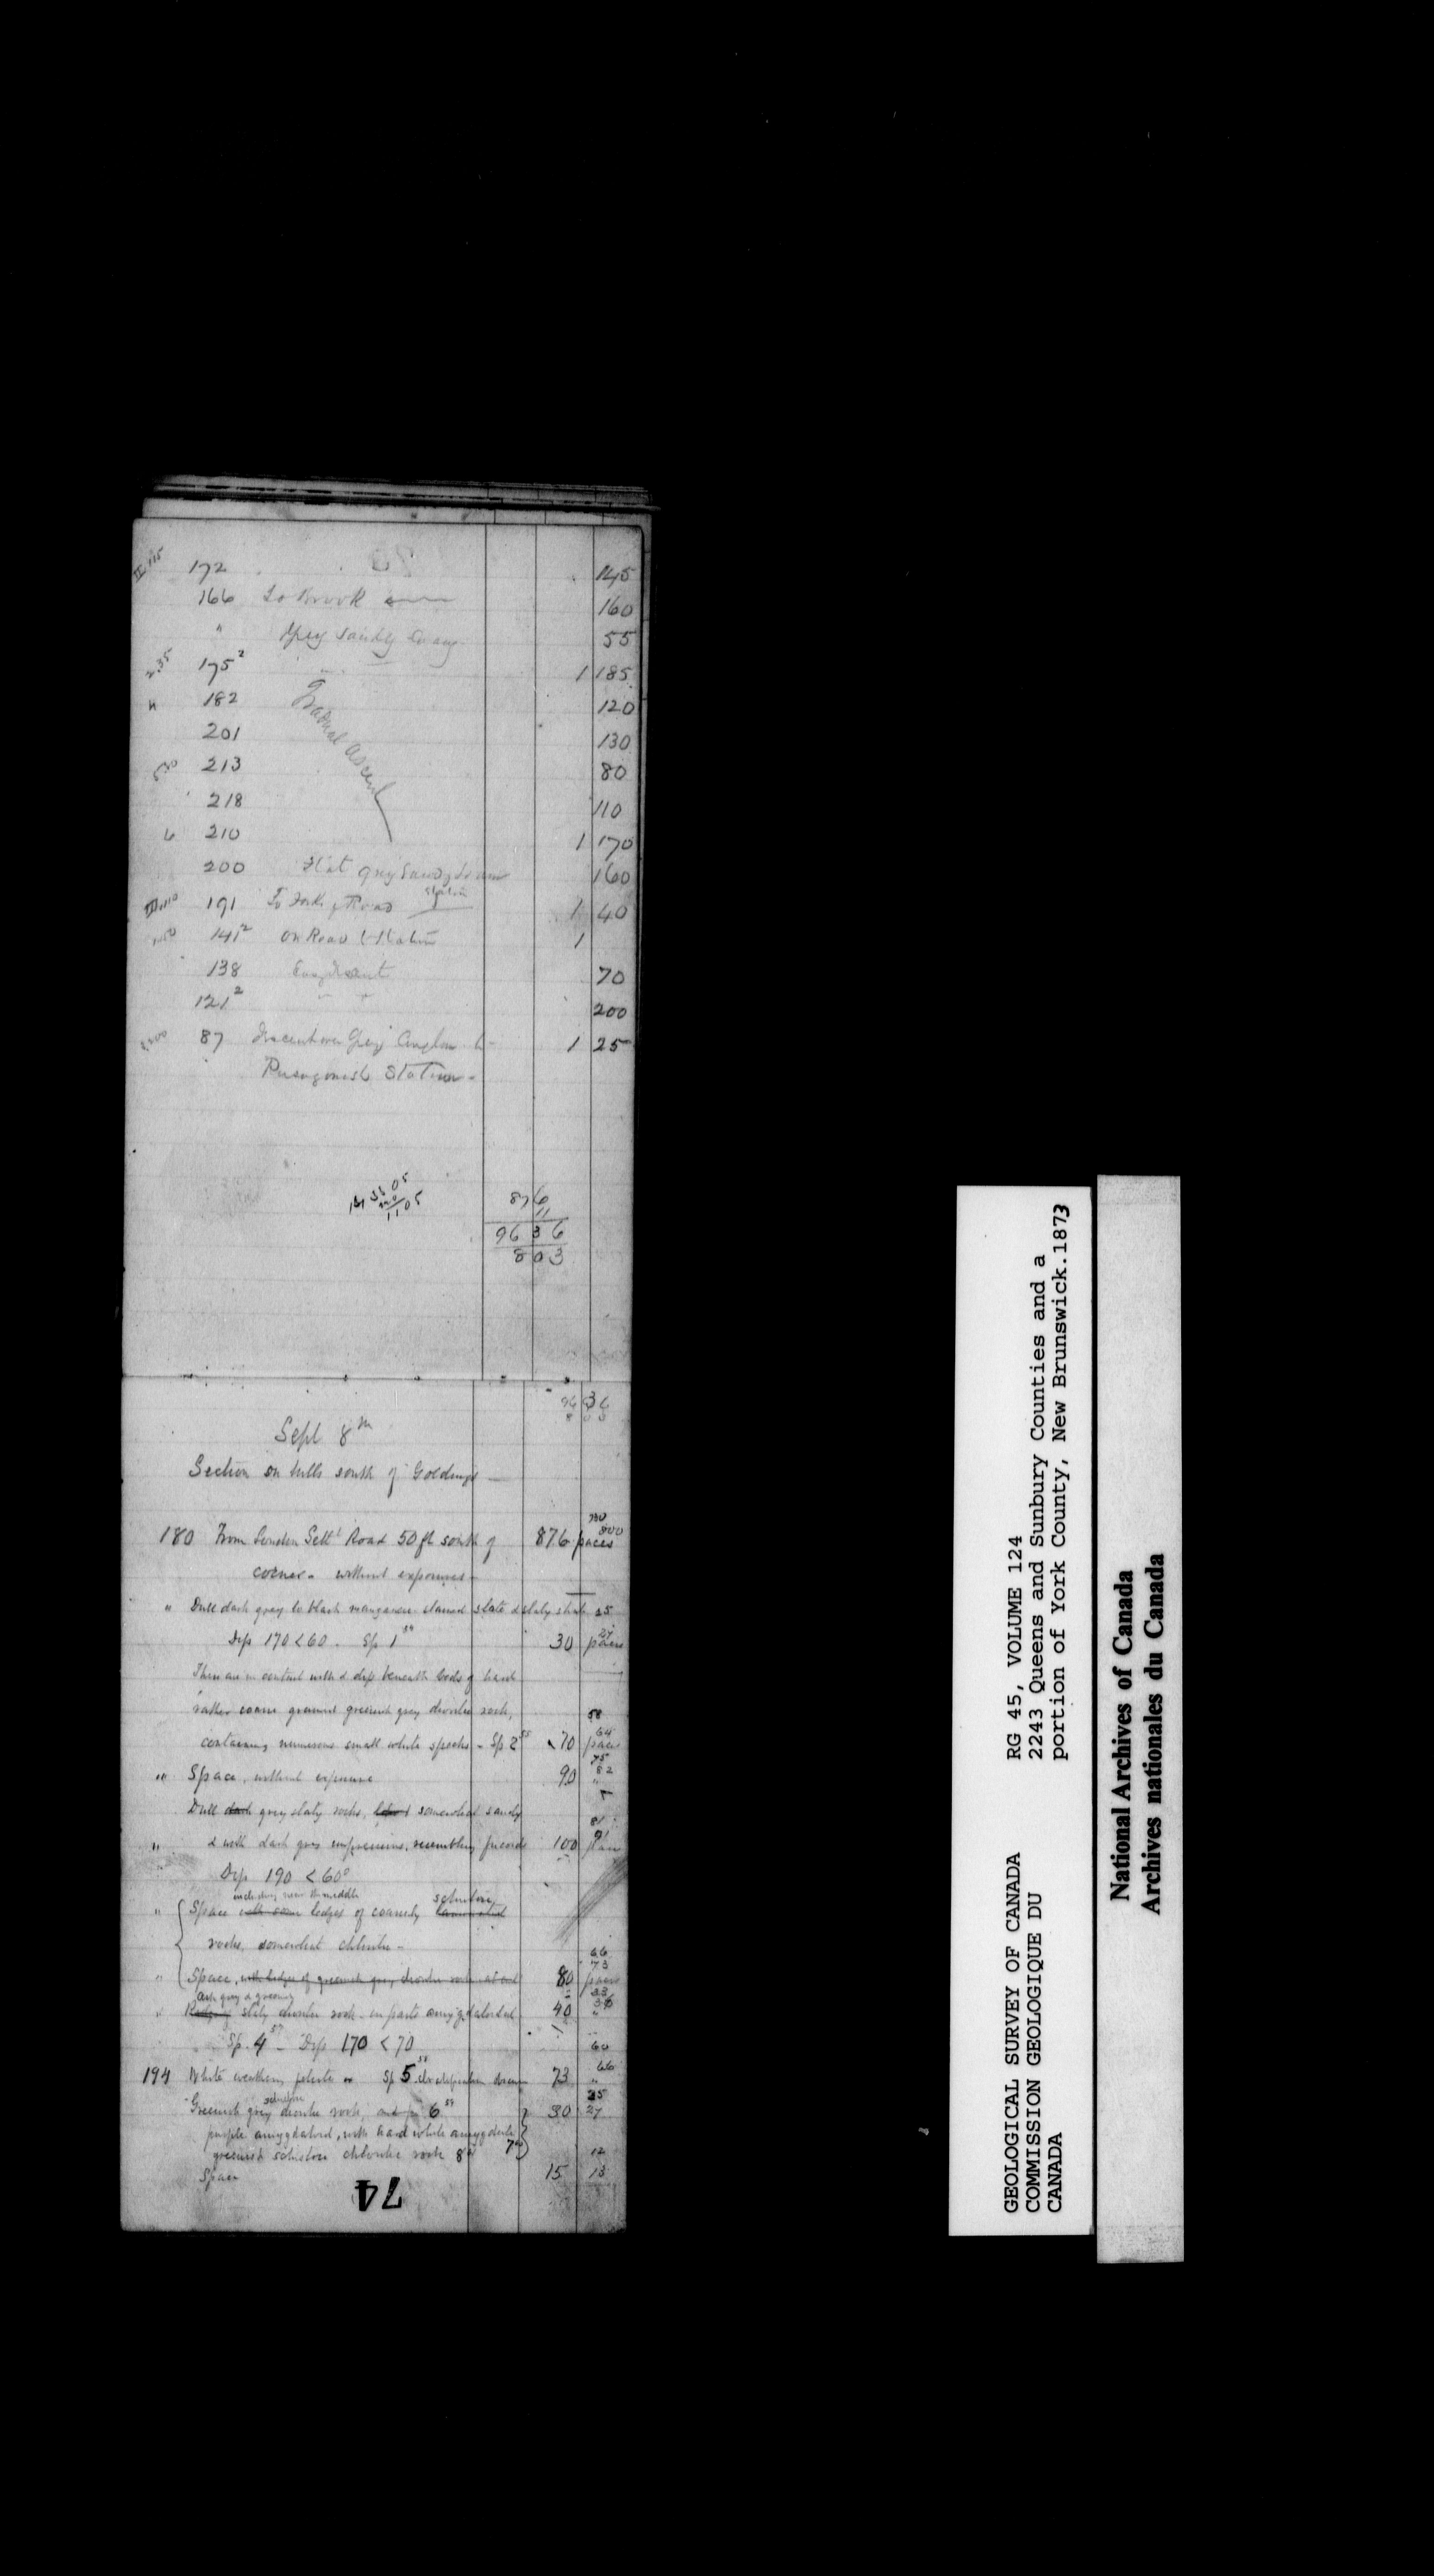 172 145
166 To Brook 160
" Grey Sandy 55
2.35 175² 1 185
" 182 120
201 130
213 80
218 110
Gradual ascent
6 210 1 170
200 Flat grey Sandy 160
191 To Forks of Road Station 1 40
141² on Road 1
138 70
121² 200
87 Grey 1 25
Station
876
11
9636
803
1105
96 36
8 03
Sept 8th
Section on hills south of Goldings
180 From London Settt Road 50 ft south of 876 paces
corner - without exposures -
" Dull dark grey to black manganese stained slate & slaty shale 25
Dip 170 < 60. Sp 1 30 paces 27
These are in contact with & dip beneath beds of hard
rather coarse grained greenish grey dioritic rock, 58
containing numerous small white specks - Sp 2 70 paces 64
" Space, without exposure 90 " 75 82
Dull dark grey slaty rocks, somewhat sandy
" & with dark grey impressions, resembling fucoids 100 91
Dip 190 < 60°
including near the middle schistose
" Space with some ledges of coarsely laminated
rocks, somewhat chloritic -
" Space, with ledges of greenish grey dioritic rock 80 paces 66 73
Ash grey & greenish
" slaty dioritic rock - in parts amygdaloidal 40 " 36
Sp. 4 - Dip 170 < 70
194 White weathering felsite Sp 5 73 " 60 66
schistose
Greenish grey dioritic rock, 6 30 25 27
purple amygdaloid, with hard white amygdules 7
greenish schistose chloritic rock 8
Space 15 12 13
74
GEOLOGICAL SURVEY OF CANADA RG 45, VOLUME 124
COMMISSION GEOLOGIQUE DU 2243 Queens and Sunbury Counties and a
CANADA portion of York County, New Brunswick.1873
National Archives of Canada
Archives nationales du Canada